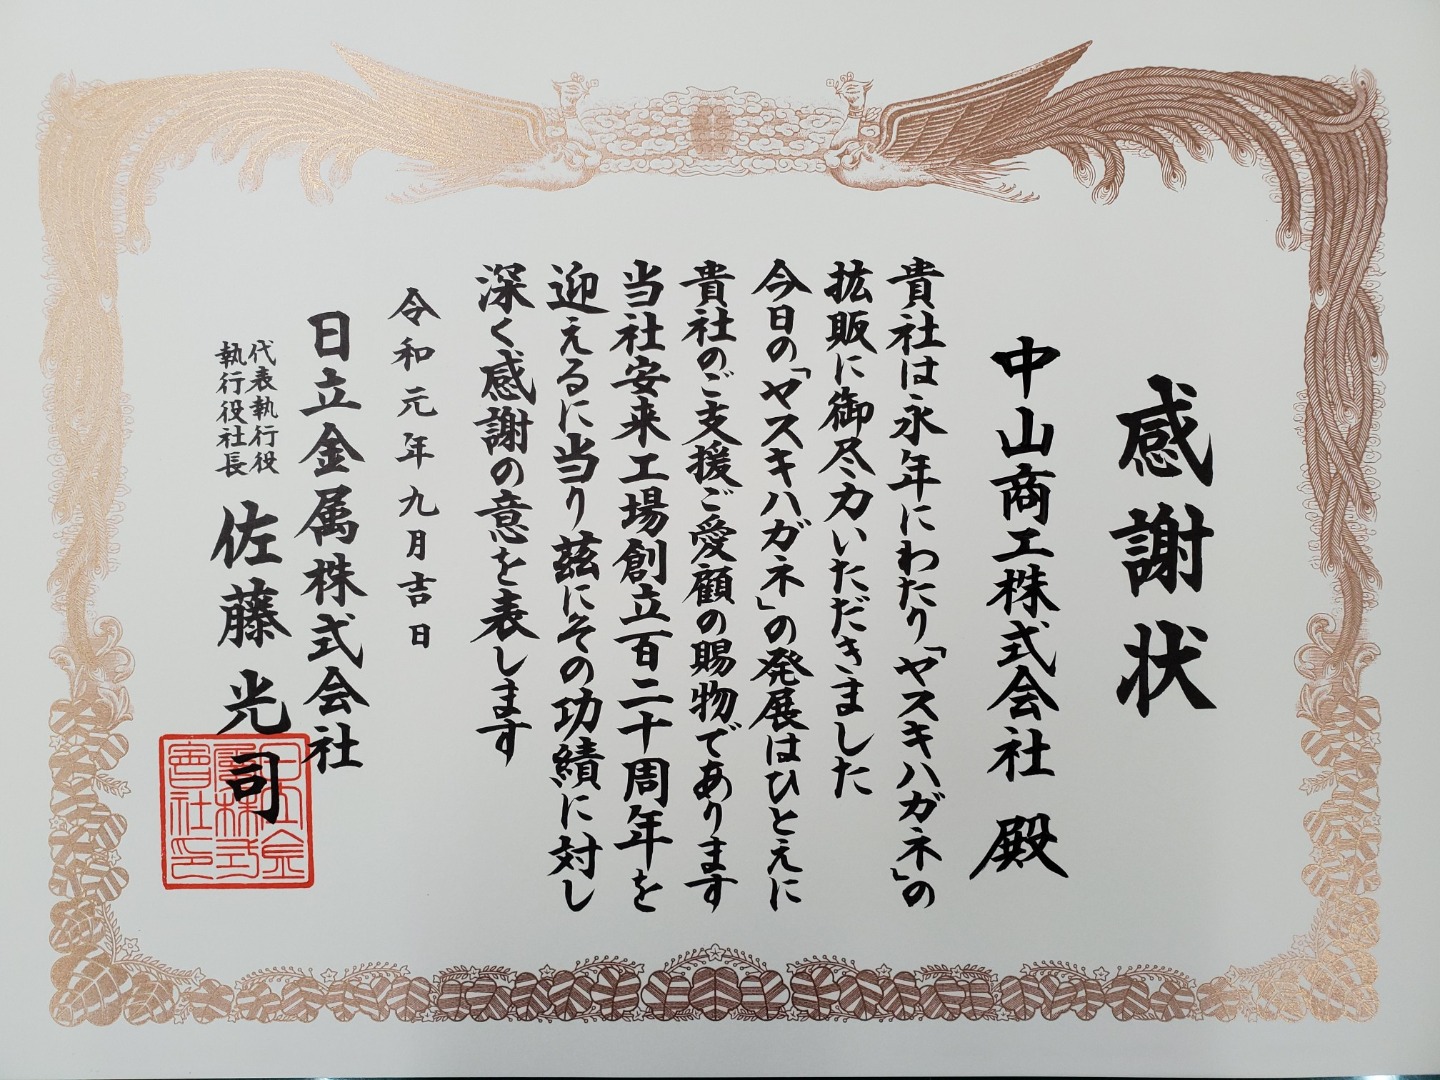 感謝状
中山商工株式会社 殿
貴社は永年にわたり「ヤスキハガネ」の
拡販に御尽力いただきました
今日の「ヤスキハガネ」の発展はひとえに
貴社のご支援ご愛顧の賜物であります
当社安来工場創立百二十周年を
迎えるに当り茲にその功績に対し
深く感謝の意を表します
令和元年九月吉日
日立金属株式会社
代表執行役
執行役社長
佐藤光司
日立金
属株式
會社印